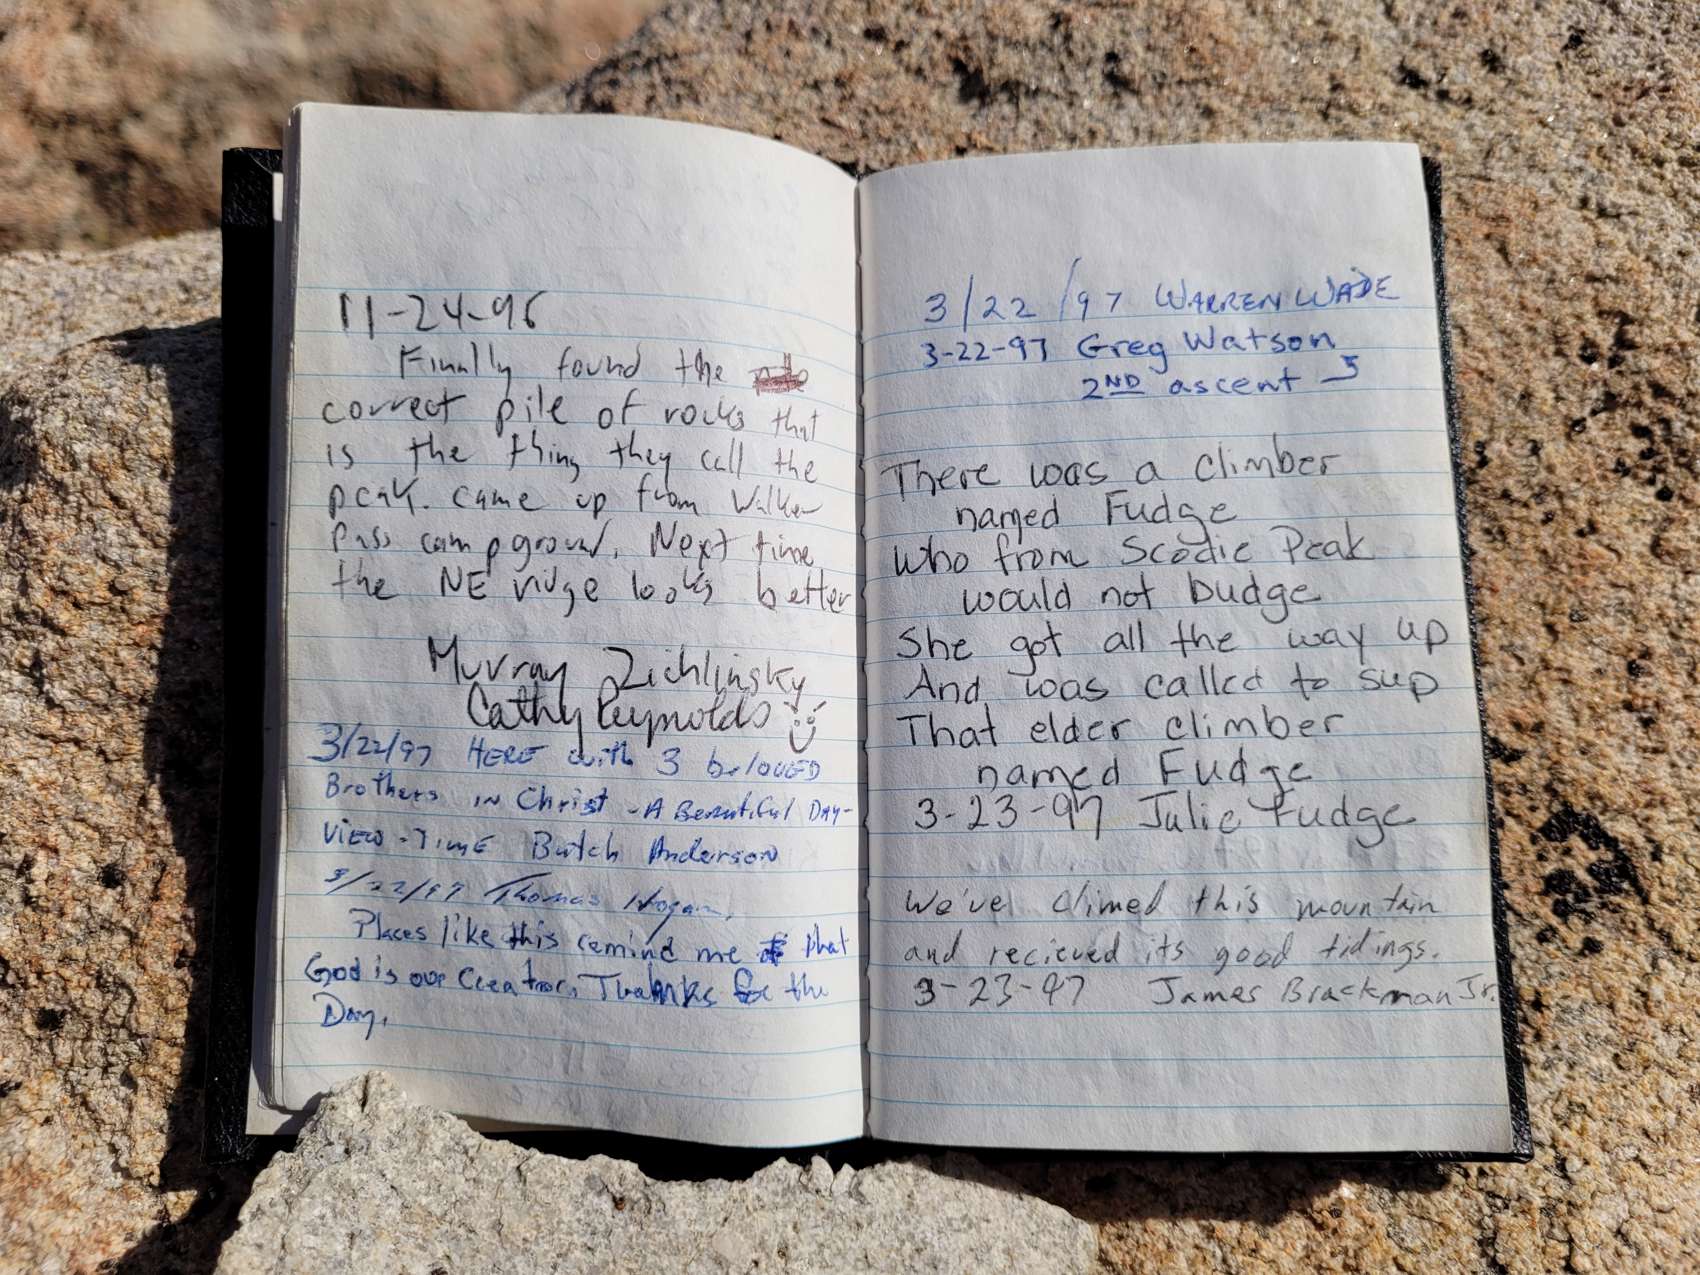 11-24-96
Finally found the
correct pile of rocks that
is the thing they call the
peak. came up from Walker
Pass campground. Next time
the NE ridge looks better
Murray Zichlinsky
Cathy Reynolds
3/22/97 HERE with 3 beloved
Brothers in Christ - A Beautiful Day -
View - Time Butch Anderson
3/22/97 Thomas Hogan,
Places like this remind me that
God is our Creator, Thanks for the
Day,
3/22/97 WARREN WADE
3-22-97 Greg Watson
2ND ascent
There was a climber
named Fudge
Who from Scodie Peak
would not budge
She got all the way up
And was called to sup
That elder climber
named Fudge
3-23-97 Julie Fudge
We'vel climed this mountain
and recieved its good tidings.
3-23-97 James Brackman Jr.